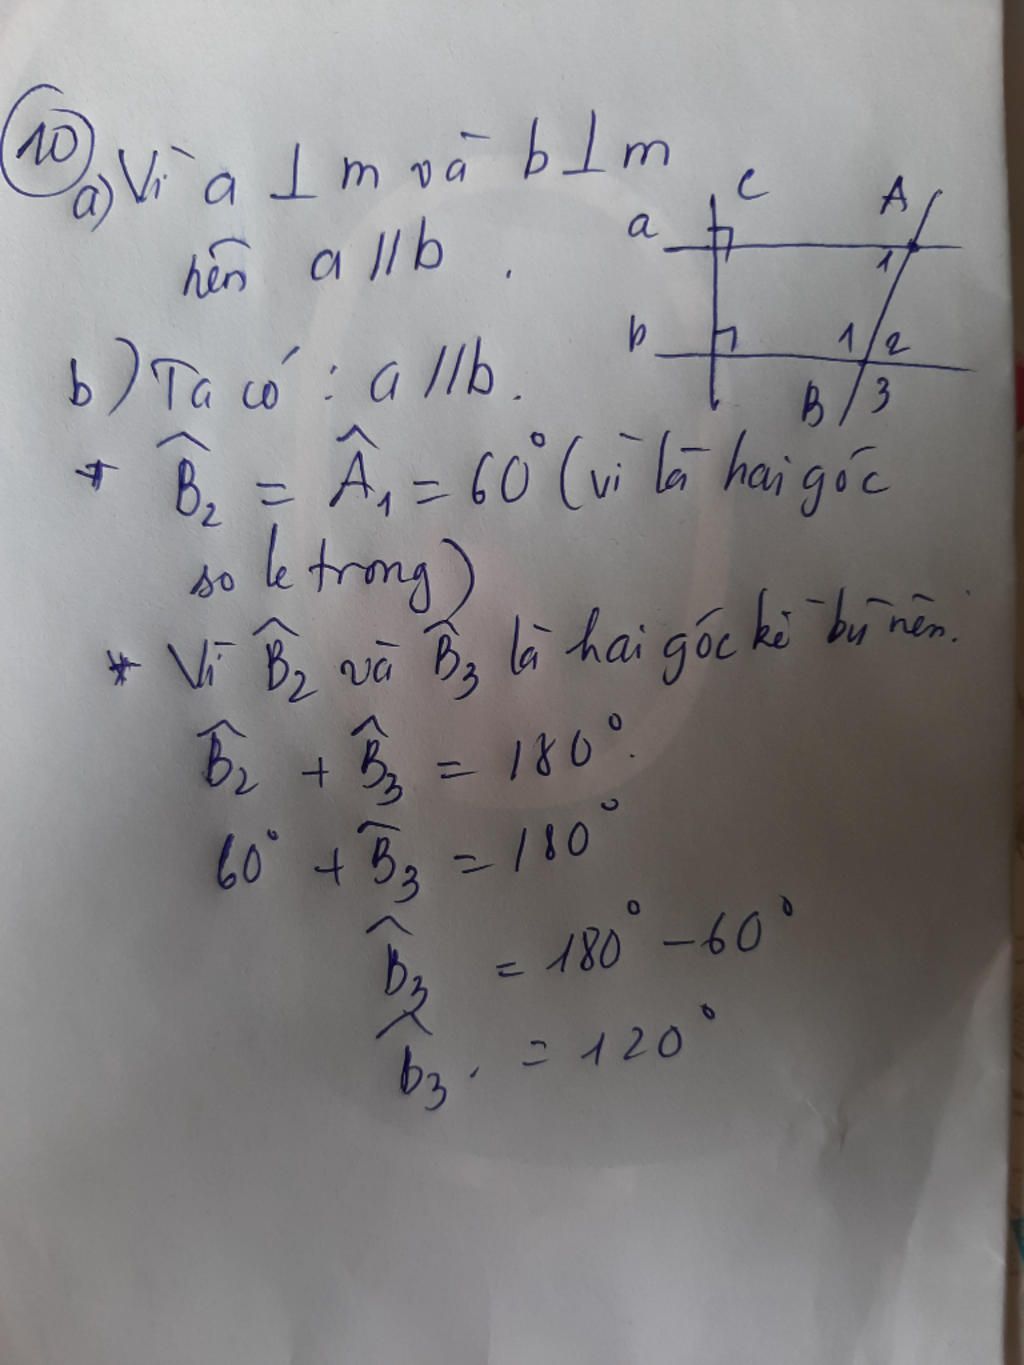 10
a) Vì a ⊥ m và b ⊥ m
nên a // b .
c
a
A
1
b
1 2
B 3
b) Ta có : a // b .
* B̂₂ = Â₁ = 60° (vì là hai góc
so le trong)
* Vì B̂₂ và B̂₃ là hai góc kề bù nên.
B̂₂ + B̂₃ = 180°.
60° + B̂₃ = 180°
B̂₃ = 180° - 60°
b̂₃ . = 120°